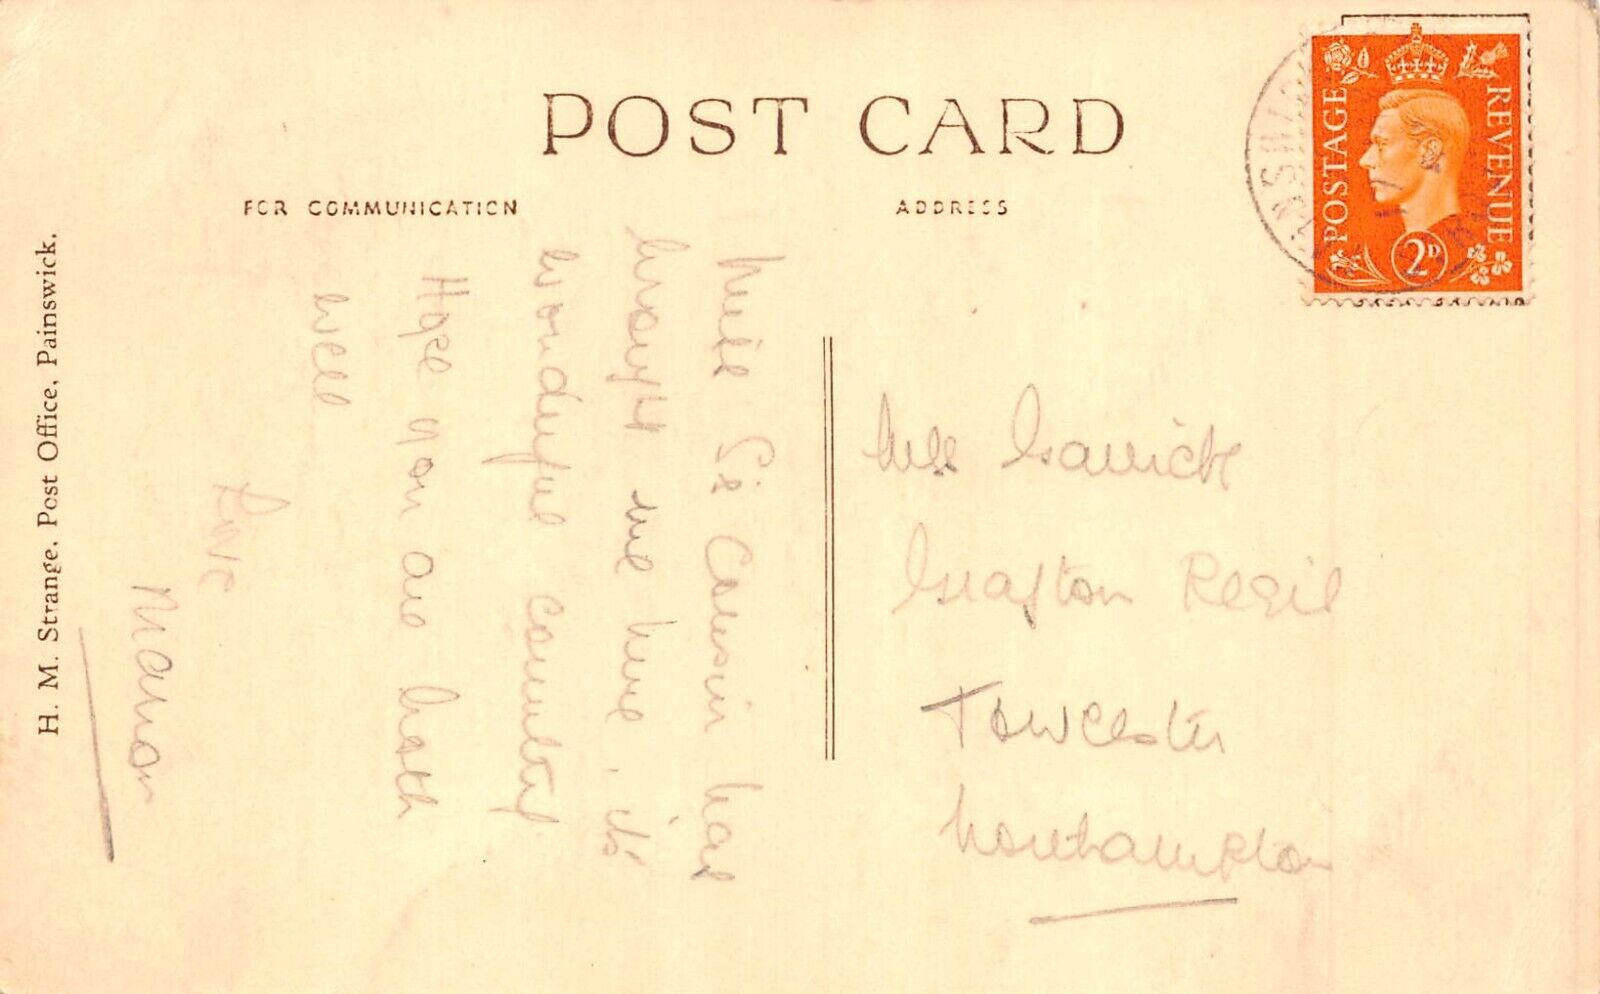 POST CARD
FOR COMMUNICATION
ADDRESS
POSTAGE
REVENUE
2D
H. M. Strange, Post Office, Painswick.
Cousin have
brought me here, it's
wonderful country
Hope you are both
well
Love
Grafton Regis
Towcester
Northampton